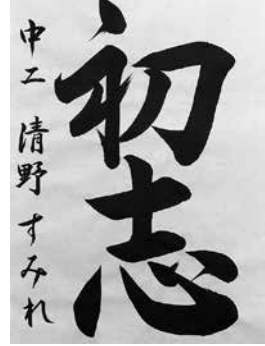 初志
中二 清野 すみれ